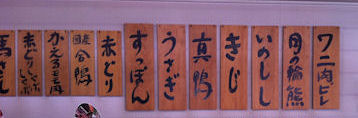 ワニ肉ヒレ
月の輪熊
いのしし
きじ
真鴨
うさぎ
すっぽん
赤どり
国産
合鴨
かえるモモ肉
赤どり
馬さし